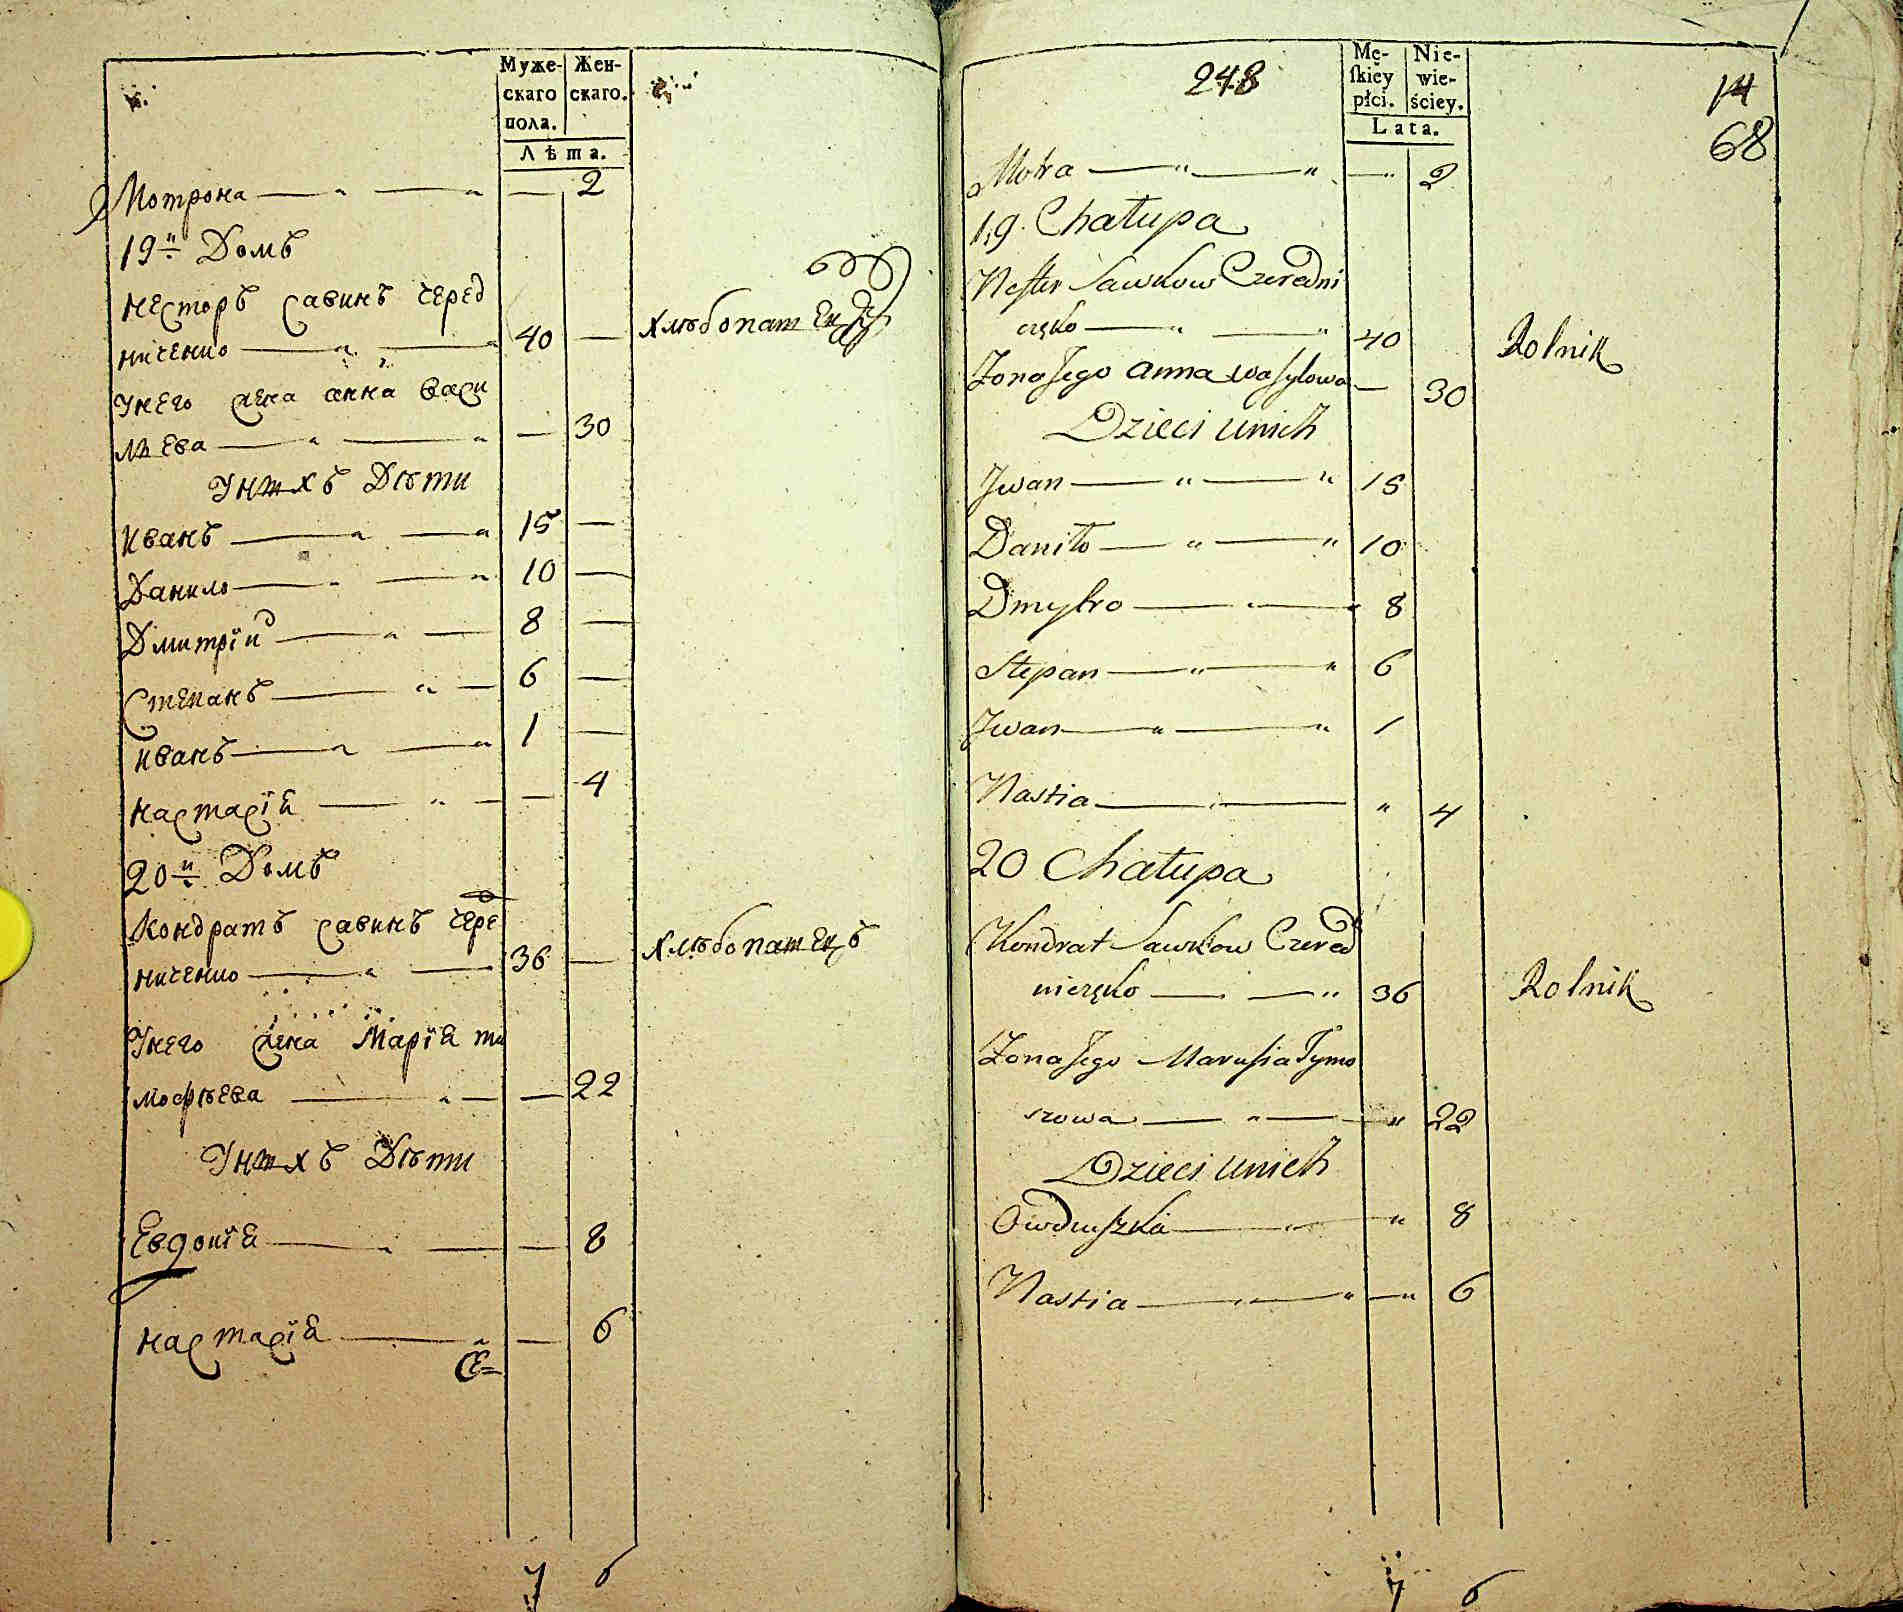 Муже-
скаго
пола.
Жен-
скаго.
Лѣта.
Мотрона — " — " — 2
19й Домъ
Несторъ Савинъ Черед
ниченко — " — 40 — Хлѣбопашецъ
У него жена Анна Васи
лѣева — " — " — 30
У нихъ Дѣти
Иванъ — " — " 15 —
Данило — " — " 10 —
Дмитрій — " — 8 —
Степанъ — " — 6 —
Иванъ — " — " 1 —
Настасія — " — — 4
20й Домъ
Кондратъ Савинъ Чере
ниченко — " — 36 — Хлѣбопашецъ
У него жена Марія Ти
мофѣева — " — — 22
У нихъ Дѣти
Евдокія — " — — 8
Настасія — " — 6
7 6
248
Mę-
ſkiey
płci.
Nie-
wie-
ściey.
Lata.
14
68
Motra — " — " — " 2
19. Chałupa
Nester Sawkow Czeredni
częko — " — " 40 Rolnik
Zona Jego Anna Wasylowa — 30
Dzieci unich
Jwan — " — " 15
Daniło — " — " 10
Dmytro — " — " 8
Stepan — " — " 6
Jwan — " — " 1
Nastia — " — " 4
20 Chałupa
Kondrat Sawkow Czered
niczęko — — " 36 Rolnik
Zona Jego Marusia Tymo
szowa — " — " 22
Dzieci unich
Owduszka — " — " 8
Nastia — " — " — " 6
7 6